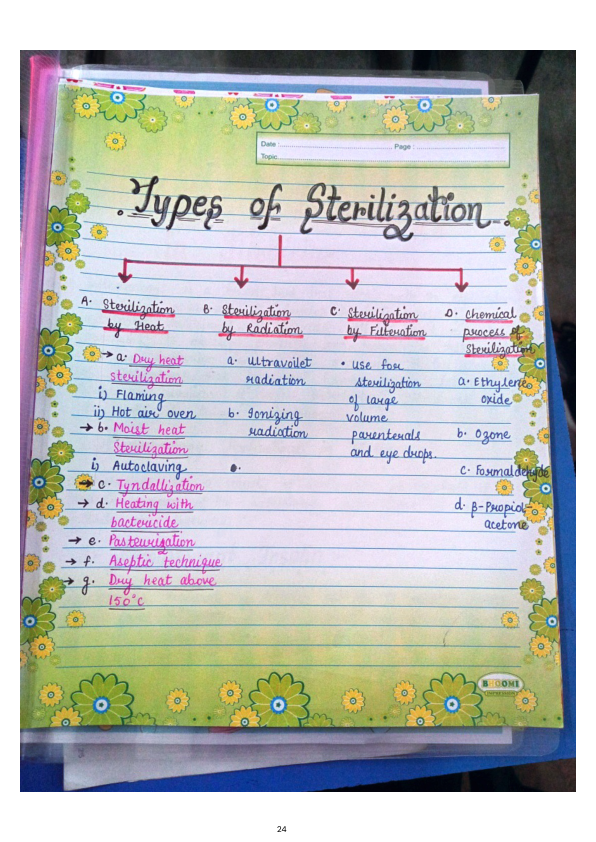 Date : Page :
Topic
.Types of Sterilization.
A. Sterilization
by Heat
→ a. Dry heat
sterilization
i) Flaming
ii) Hot air oven
→ b. Moist heat
Sterilization
i) Autoclaving
→ c. Tyndallization
→ d. Heating with
bactericide
→ e. Pasteurization
→ f. Aseptic technique
→ g. Dry heat above
150°c
B. Sterilization
by Radiation
a. Ultravoilet
radiation
b. Ionizing
radiation
C. Sterilization
by Filteration
• use for
sterilization
of large
volume
parenterals
and eye drops.
D. Chemical
process of
Sterilization
a. Ethylene
oxide
b. Ozone
c. Formaldehyde
d. β-Propiol-
acetone
BHOOMI
24